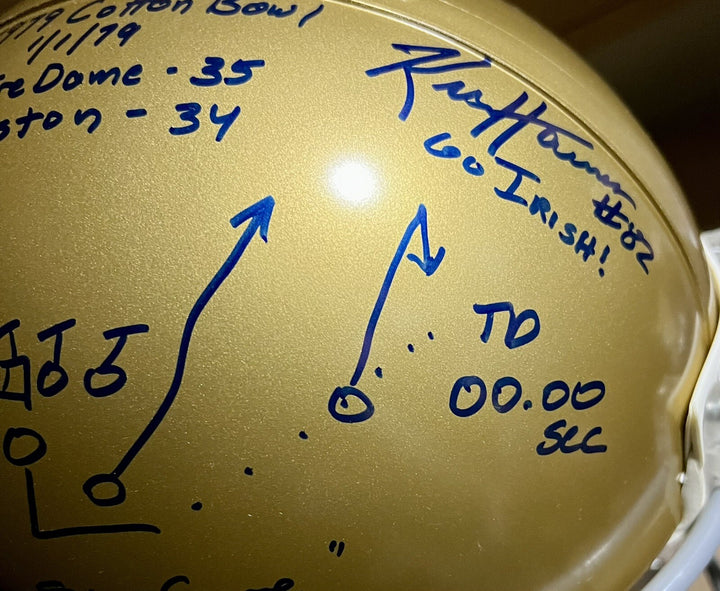 1979 Cotton Bowl
1/1/79
re Dame - 35
ston - 34
Kris Haines #82
GO IRISH!
TD
00.00
SEC